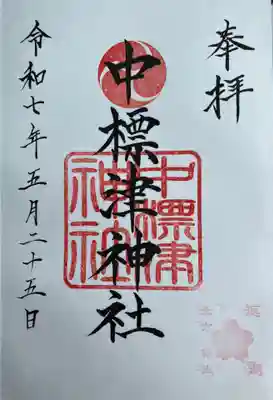 奉拝
中標津神社
中標津
神社
令和七年五月二十五日